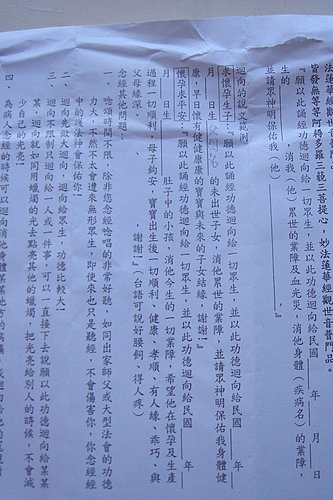 法蓮華經觀世
皆發無等等阿耨多羅三藐三菩提心。妙法蓮華經觀世音普門品。
『願以此誦經功德迴向給一切眾生，並以此功德迴向給民國　年　月　日
生的　　，消我（他）累世的業障及血光災，消他身體（疾病名）的業障，
並請眾神明保佑我（他）
迴向的說文範例
求懷孕生子：『願以此誦經功德迴向給一切眾生，並以此功德迴向給民國　年
　月　日生　的未出世子女，消他累世的業障，並請眾神明保佑我身體健
康，早日懷有健康健康的寶寶與未來的子女結緣，謝謝！』
懷孕求平安：『願以此誦經功德迴向給一切眾生，並以此功德迴向給民國　年
　月　日生　肚子中的小孩，消他今生的一切業障，希望他在懷孕及生產
過程一切順利，母子鈞安，寶寶出生後一切順利、健康、孝順、有人緣、乖巧、與
父母緣深、　　，謝謝！』（台語可說好腰飼、得人疼）
念經其他問題：
一、唸頌時間不限，除非您念經唸唱的非常好聽，如同出家師父或大型法會的功德
力大，不然不太會遭來無形眾生，即使來也只是聽經，不會傷害你，你念經經
中的護法神會保佑你！
二、迴向先做大迴向，迴向給眾生，功德比較大！
三、迴向不限制只迴向給一人或一件事，可以一直接下去說願以此功德迴向給某某
某，迴向就如同用蠟燭的光去點亮其他的蠟燭，把光亮給別人的時候，不會減
少自己的光亮！
四、為病人念經的時候可以迴向消他身體某某地方的病痛